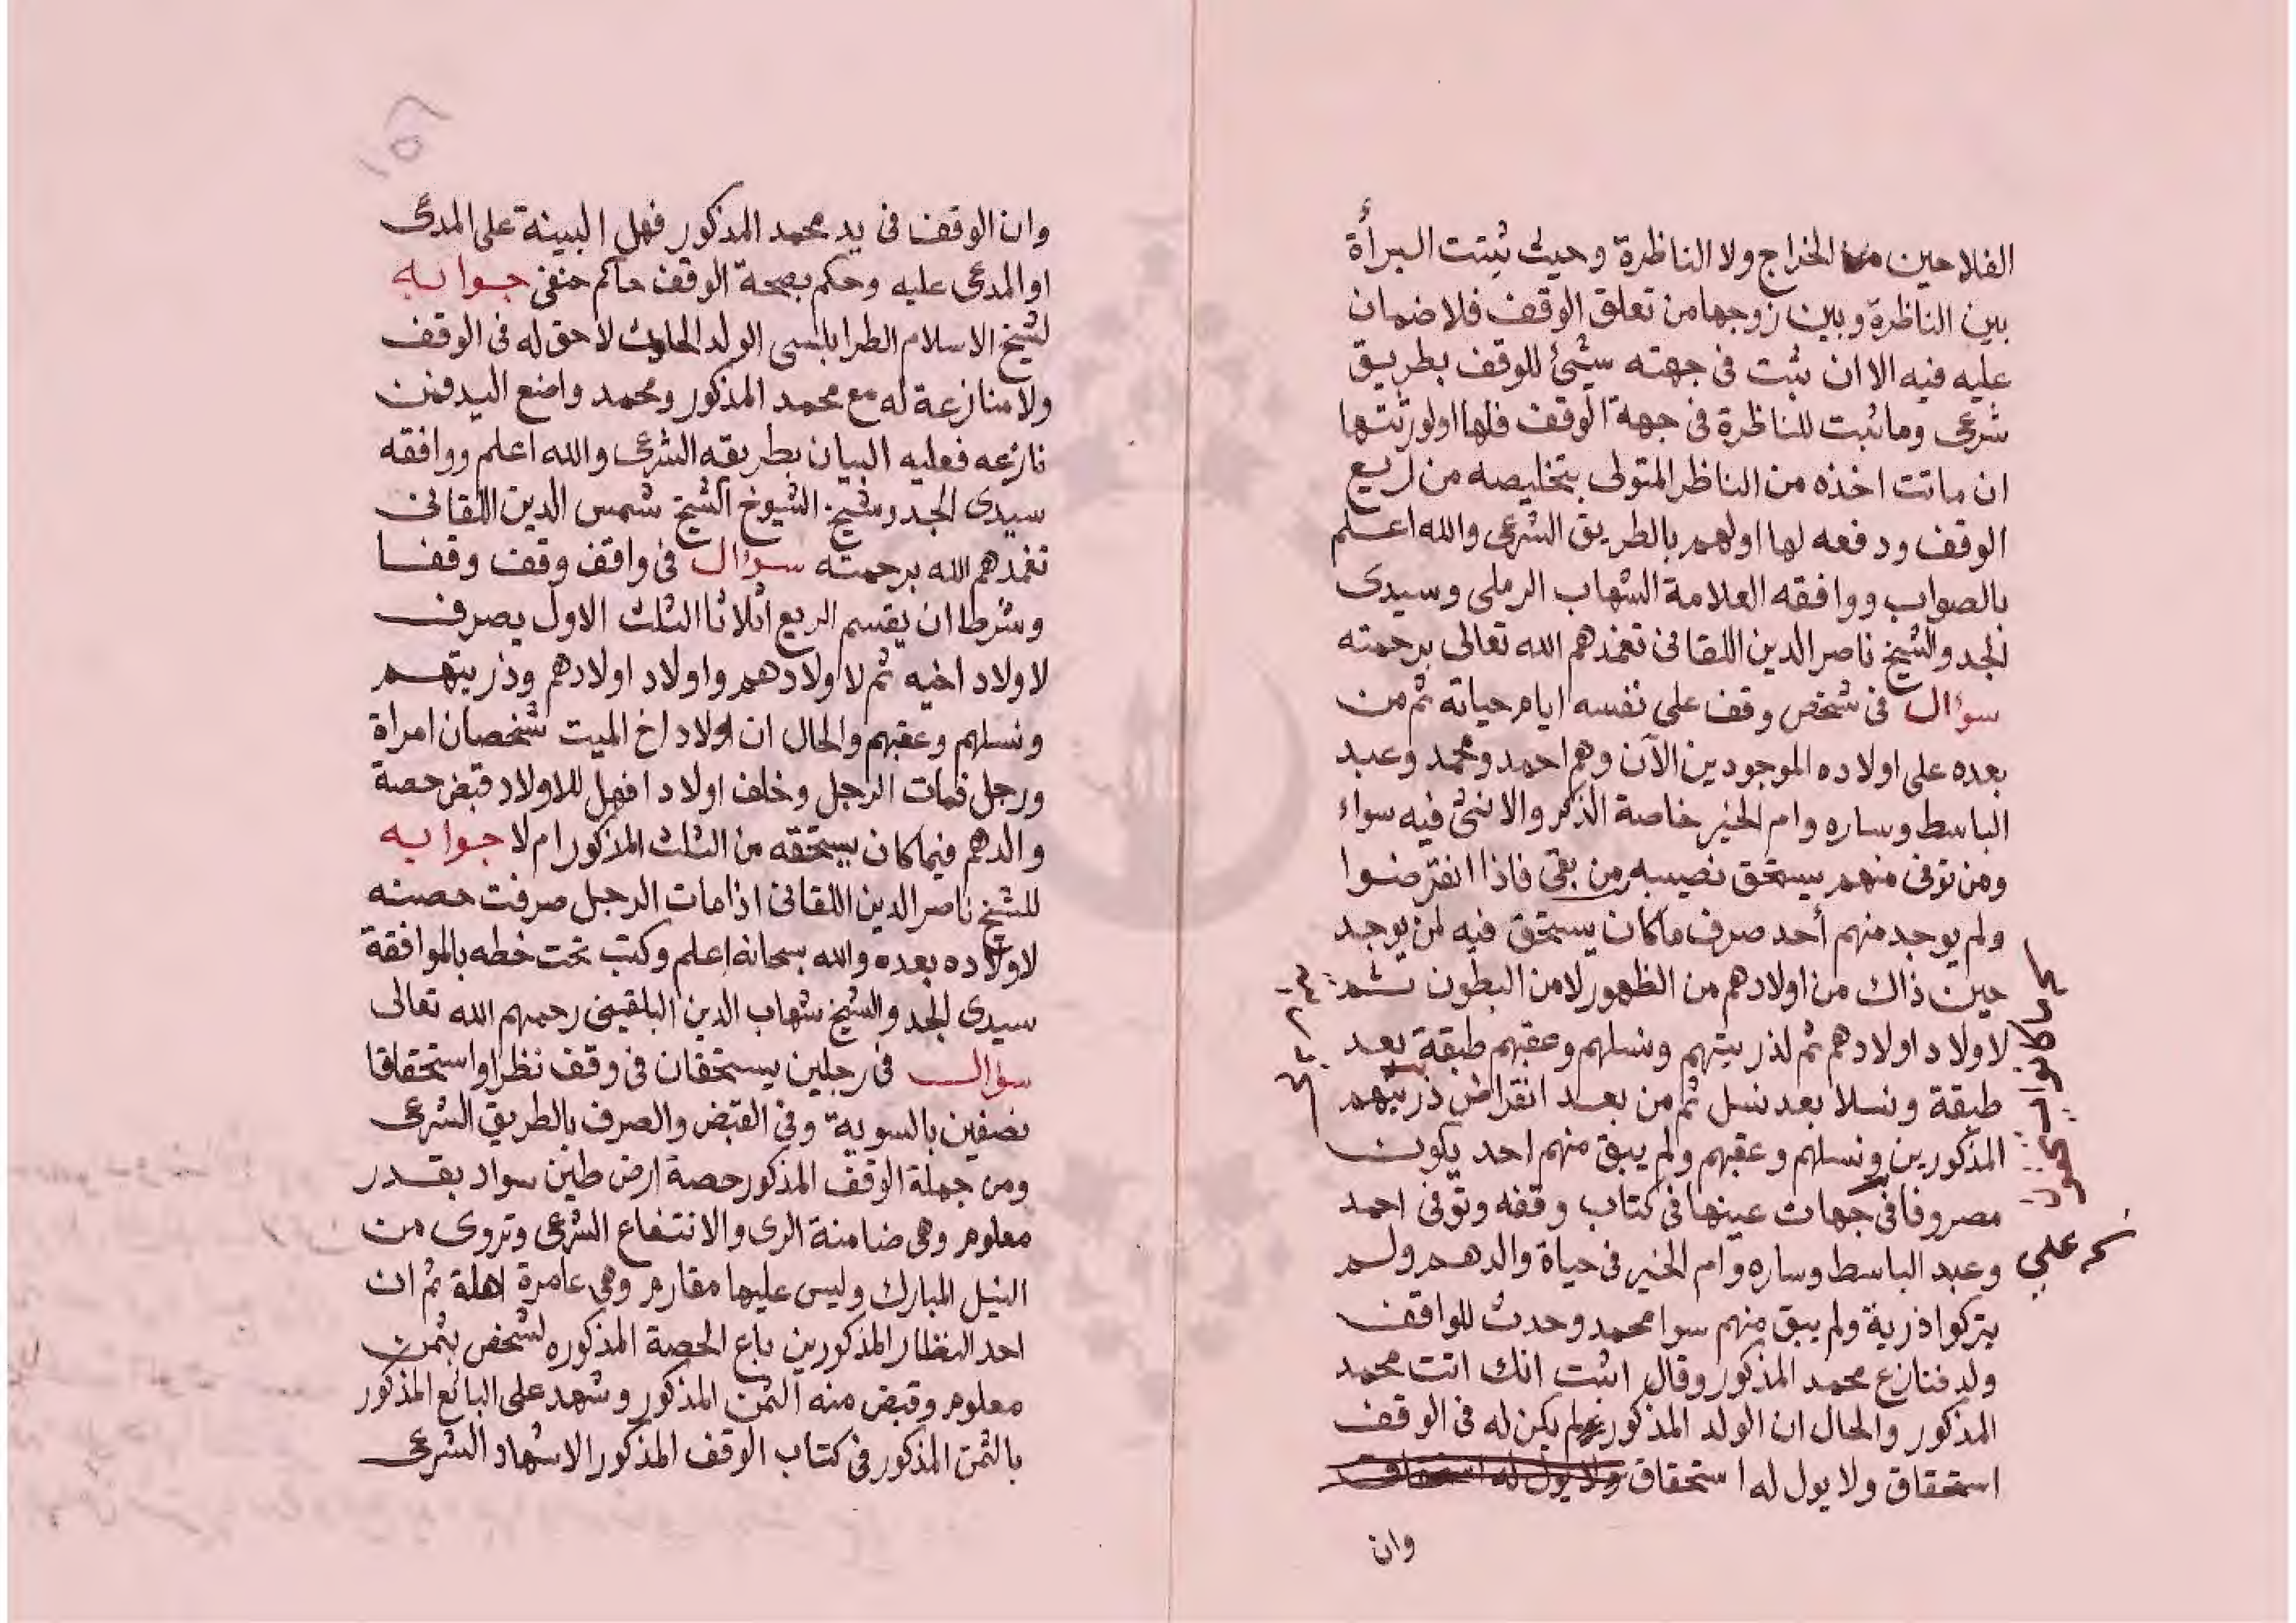 الفلاحين من الخراج ولا الناظرة وحيث ثبتت البرأة
بين الناظرة وبين زوجها من تعلق الوقف فلا ضمان
عليه فيه الا ان ثبت في جهته شيئ للوقف بطريق
شرعى وما ثبت للناظرة في جهة الوقف فلها او لورثتها
ان ماتت اخذه من الناظر المتولى بتخليصه من ريع
الوقف ودفعه لها او لهم بالطريق الشرعى والله اعلم
بالصواب ووافقه العلامة الشهاب الرملى وسيدى
الجد والشيخ ناصر الدين اللقانى تغمدهم الله تعالى برحمته
سؤال في شخص وقف على نفسه ايام حياته ثم من
بعده على اولاده الموجودين الآن وهم احمد ومحمد وعبد
الباسط وساره وام الخير خاصة الذكر والانثى فيه سواء
ومن توفى منهم يستحق نصيبه من بقى فاذا انقرضوا
ولم يوجد منهم أحد صرف ما كان يستحق فيه لمن يوجد
حين ذاك من اولادهم من الظهور لا من البطون ثم
لاولاد اولادهم ثم لذريتهم ونسلهم وعقبهم طبقة بعد
طبقة ونسلا بعد نسل ثم من بعد انقراض ذريتهم
المذكورين ونسلهم وعقبهم ولم يبق منهم احد يكون
مصروفا في جهات عينها في كتاب وقفه وتوفى احمد
وعبد الباسط وساره وام الخير في حياة والدهم ولم
يتركوا ذرية ولم يبق منهم سوا محمد وحدث للواقف
ولد فنازع محمد المذكور وقال اثبت انك انت محمد
المذكور والحال ان الولد المذكور لم يكن له في الوقف
استحقاق ولا يول له استحقاق ولا يول له استحقاق
وان
وان الوقف في يد محمد المذكور فهل البينة على المدعى
او المدعى عليه وحكم بصحة الوقف حاكم حنفى جوابه
لشيخ الاسلام الطرابلسى الولد الحادث لا حق له في الوقف
ولا منازعة له مع محمد المذكور ومحمد واضع اليد فمن
نازعه فعليه البيان بطريقه الشرعى والله اعلم ووافقه
سيدى الجد وشيخ الشيوخ الشيخ شمس الدين اللقانى
تغمدهم الله برحمته سؤال في واقف وقف وقفا
وشرط ان يقسم الريع اثلاثا الثلث الاول يصرف
لاولاد اخيه ثم لاولادهم واولاد اولادهم وذريتهم
ونسلهم وعقبهم والحال ان اولاد اخ الميت شخصان امراة
ورجل فمات الرجل وخلف اولادا فهل للاولاد قبض حصة
والدهم فيما كان يستحقه من الثلث المذكور ام لا جوابه
للشيخ ناصر الدين اللقانى اذا مات الرجل صرفت حصته
لاولاده بعده والله سبحانه اعلم وكتب تحت خطه بالموافقة
سيدى الجد والشيخ شهاب الدين البلقينى رحمهم الله تعالى
سؤال في رجلين يستحقان في وقف نظرا واستحقاقا
نصفين بالسوية وفي القبض والصرف بالطريق الشرعى
ومن جملة الوقف المذكور حصة ارض طين سواد بقدر
معلوم وهي ضامنة الرى والانتفاع الشرعى وتروى من
النيل المبارك وليس عليها مقارم وهي عامرة اهلة ثم ان
احد النظار المذكورين باع الحصة المذكوره لشخص بثمن
معلوم وقبض منه الثمن المذكور وشهد على البائع المذكور
بالثمن المذكور في كتاب الوقف المذكور الاشهاد الشرعى